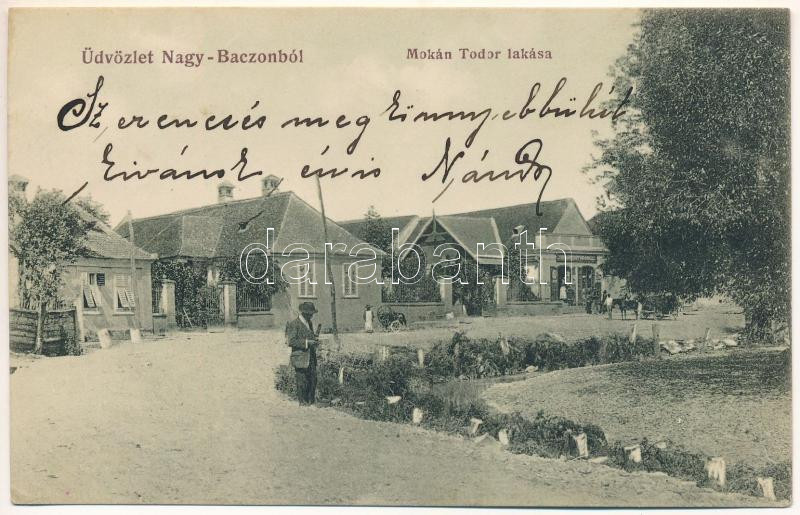 Üdvözlet Nagy-Baczonból
Mokán Todor lakása
Szerencsés megkönnyebbülést
kivánok, én is Nándor
darabanth